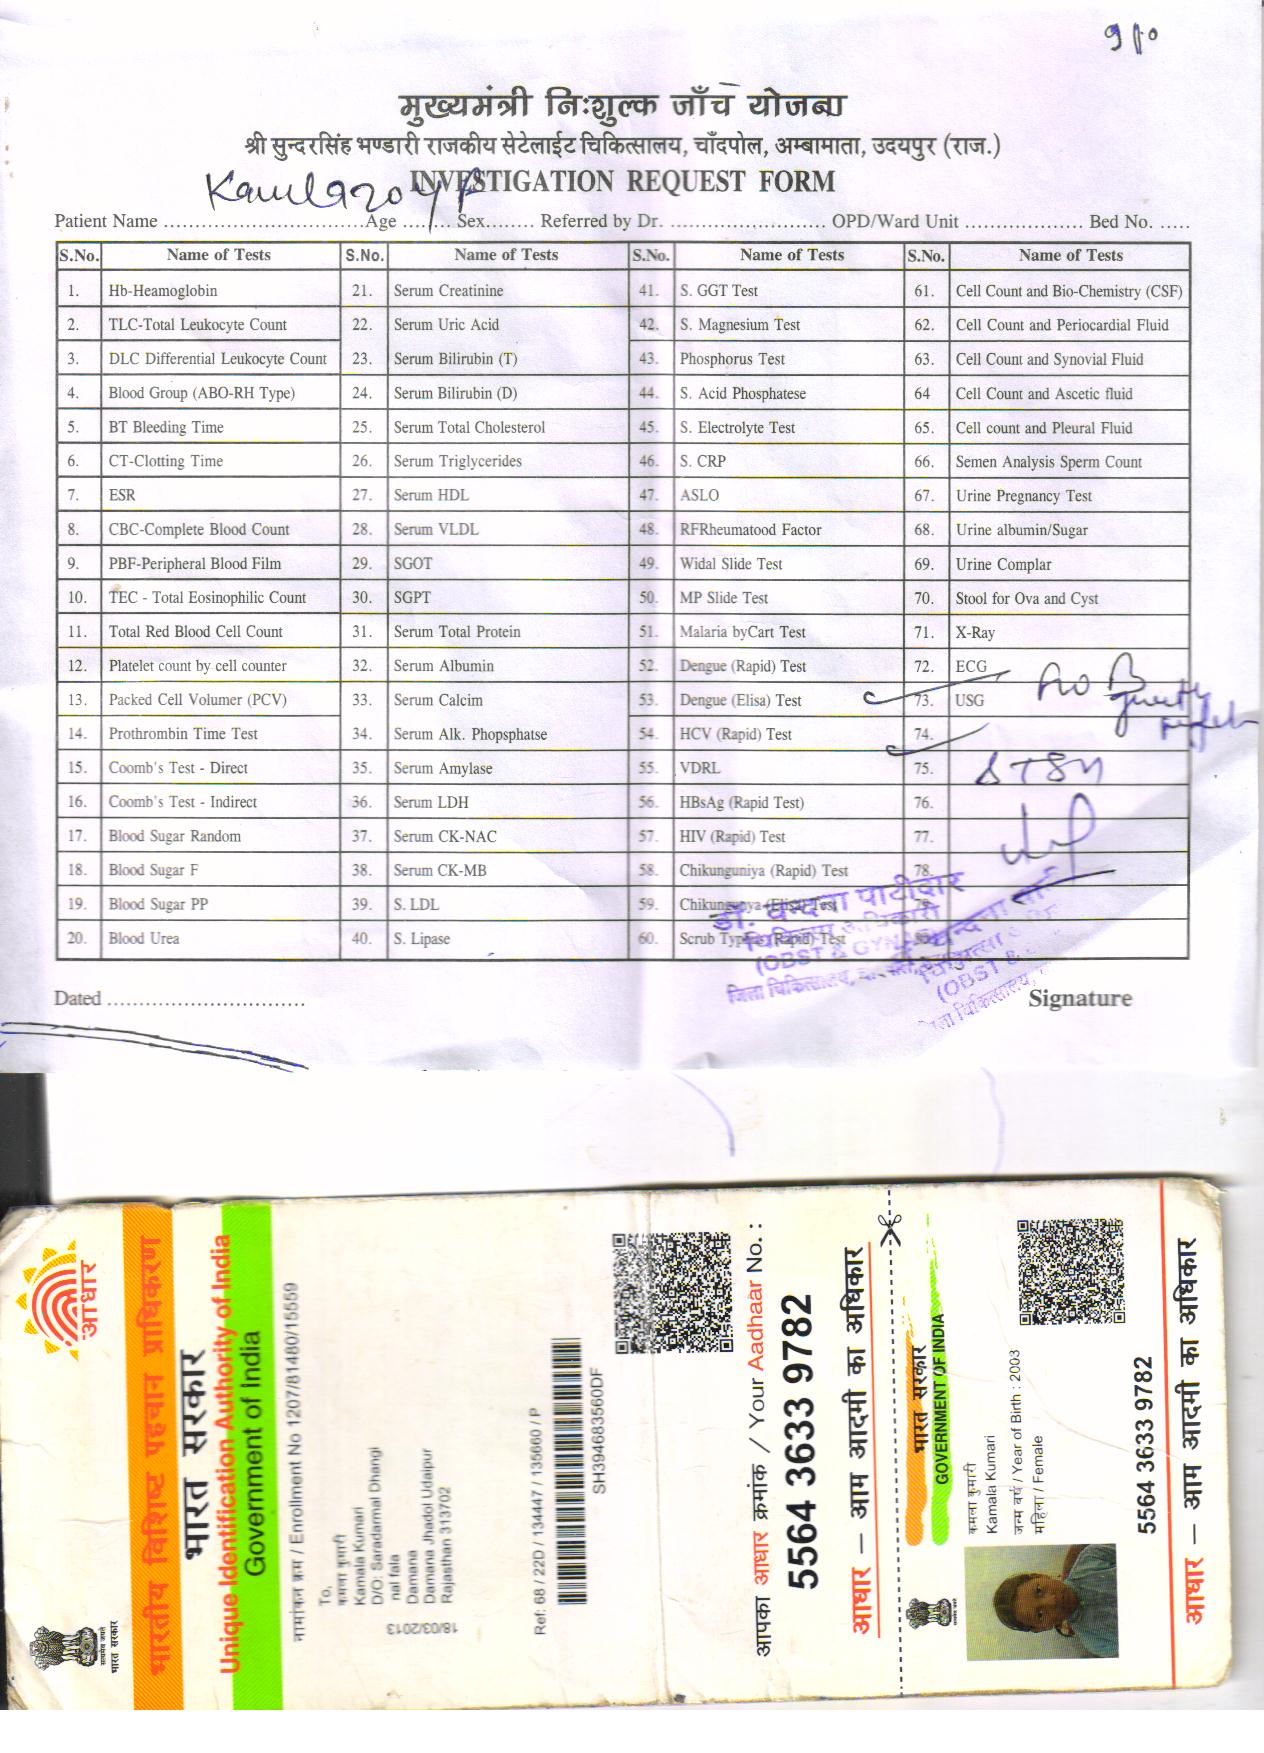 मुख्यमंत्री निःशुल्क जाँच योजना
श्री सुन्दरसिंह भण्डारी राजकीय सेटेलाईट चिकित्सालय, चाँदपोल, अम्बामाता, उदयपुर (राज.)
INVESTIGATION REQUEST FORM
Kamla 20 y F
Patient Name ................................Age ........ Sex........ Referred by Dr. ......................... OPD/Ward Unit ................... Bed No. .....
S.No. Name of Tests S.No. Name of Tests S.No. Name of Tests S.No. Name of Tests
1. Hb-Heamoglobin 21. Serum Creatinine 41. S. GGT Test 61. Cell Count and Bio-Chemistry (CSF)
2. TLC-Total Leukocyte Count 22. Serum Uric Acid 42. S. Magnesium Test 62. Cell Count and Periocardial Fluid
3. DLC Differential Leukocyte Count 23. Serum Bilirubin (T) 43. Phosphorus Test 63. Cell Count and Synovial Fluid
4. Blood Group (ABO-RH Type) 24. Serum Bilirubin (D) 44. S. Acid Phosphatese 64 Cell Count and Ascetic fluid
5. BT Bleeding Time 25. Serum Total Cholesterol 45. S. Electrolyte Test 65. Cell count and Pleural Fluid
6. CT-Clotting Time 26. Serum Triglycerides 46. S. CRP 66. Semen Analysis Sperm Count
7. ESR 27. Serum HDL 47. ASLO 67. Urine Pregnancy Test
8. CBC-Complete Blood Count 28. Serum VLDL 48. RFRheumatood Factor 68. Urine albumin/Sugar
9. PBF-Peripheral Blood Film 29. SGOT 49. Widal Slide Test 69. Urine Complar
10. TEC - Total Eosinophilic Count 30. SGPT 50. MP Slide Test 70. Stool for Ova and Cyst
11. Total Red Blood Cell Count 31. Serum Total Protein 51. Malaria byCart Test 71. X-Ray
12. Platelet count by cell counter 32. Serum Albumin 52. Dengue (Rapid) Test 72. ECG
13. Packed Cell Volumer (PCV) 33. Serum Calcim 53. Dengue (Elisa) Test 73. USG
14. Prothrombin Time Test 34. Serum Alk. Phopsphatse 54. HCV (Rapid) Test 74.
15. Coomb's Test - Direct 35. Serum Amylase 55. VDRL 75.
16. Coomb's Test - Indirect 36. Serum LDH 56. HBsAg (Rapid Test) 76.
17. Blood Sugar Random 37. Serum CK-NAC 57. HIV (Rapid) Test 77.
18. Blood Sugar F 38. Serum CK-MB 58. Chikunguniya (Rapid) Test 78.
19. Blood Sugar PP 39. S. LDL 59. Chikungunya (Elisa) Test
20. Blood Urea 40. S. Lipase 60. Scrub Typhus (Rapid) Test
डॉ. वन्दना पाटीदार
चिकित्सा अधिकारी
(OBST & GYN
जिला चिकित्सालय,
Dated ................................
Signature
आधार
भारत सरकार
भारतीय विशिष्ट पहचान प्राधिकरण
भारत सरकार
Unique Identification Authority of India
Government of India
नामांकन क्रम / Enrollment No 1207/81480/15559
To,
कमला कुमारी
Kamala Kumari
D/O: Saradarmal Dhangi
nal fala
Damana
Damana Jhadol Udaipur
Rajasthan 313702
18/03/2013
Ref: 68 / 22D / 134447 / 135660 / P
SH394683560DF
आपका आधार क्रमांक / Your Aadhaar No. :
5564 3633 9782
आधार — आम आदमी का अधिकार
भारत सरकार
GOVERNMENT OF INDIA
कमला कुमारी
Kamala Kumari
जन्म वर्ष / Year of Birth : 2003
महिला / Female
5564 3633 9782
आधार — आम आदमी का अधिकार